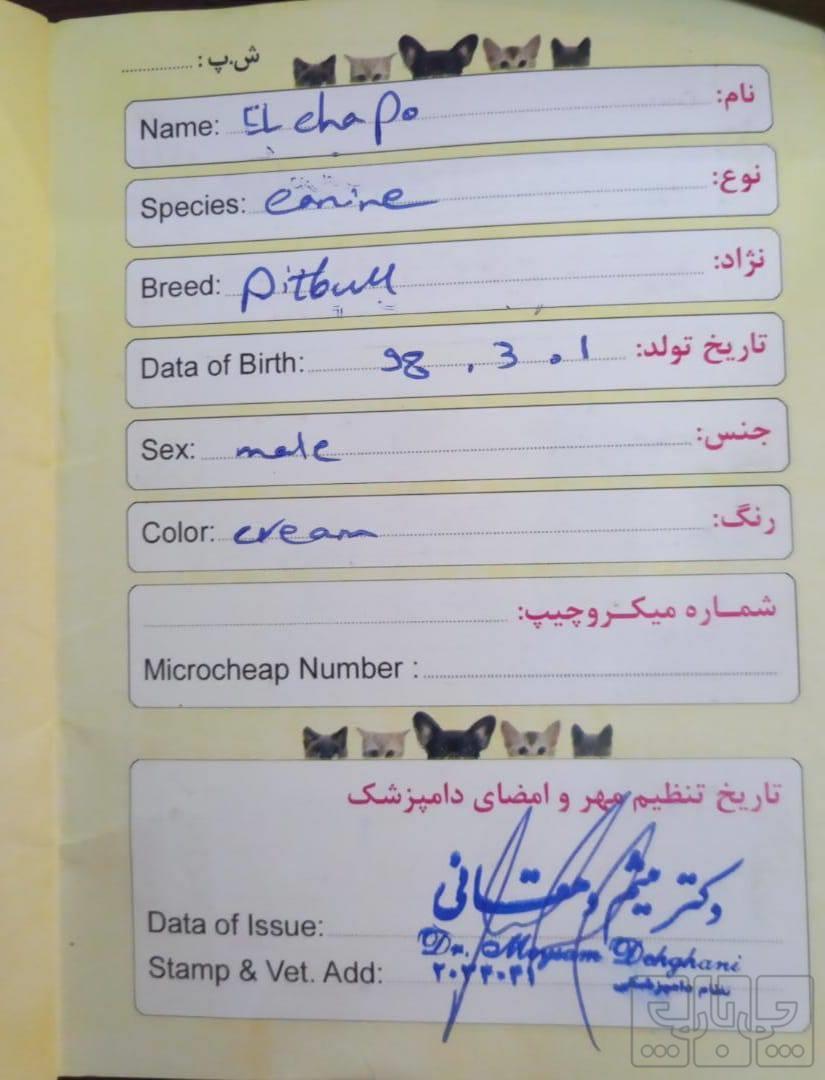 ش.پ : ..............
Name: EL chapo نام:
Species: canine نوع:
Breed: pitbull نژاد:
Data of Birth: 98 . 3 . 1 تاریخ تولد:
Sex: male جنس:
Color: cream رنگ:
شماره میکروچیپ:
Microcheap Number :
تاریخ تنظیم مهر و امضای دامپزشک
دکتر میثم دهقانی
Data of Issue:
Dr. Meysam Dehghani
Stamp & Vet. Add:
نظام دامپزشکی
چارپا